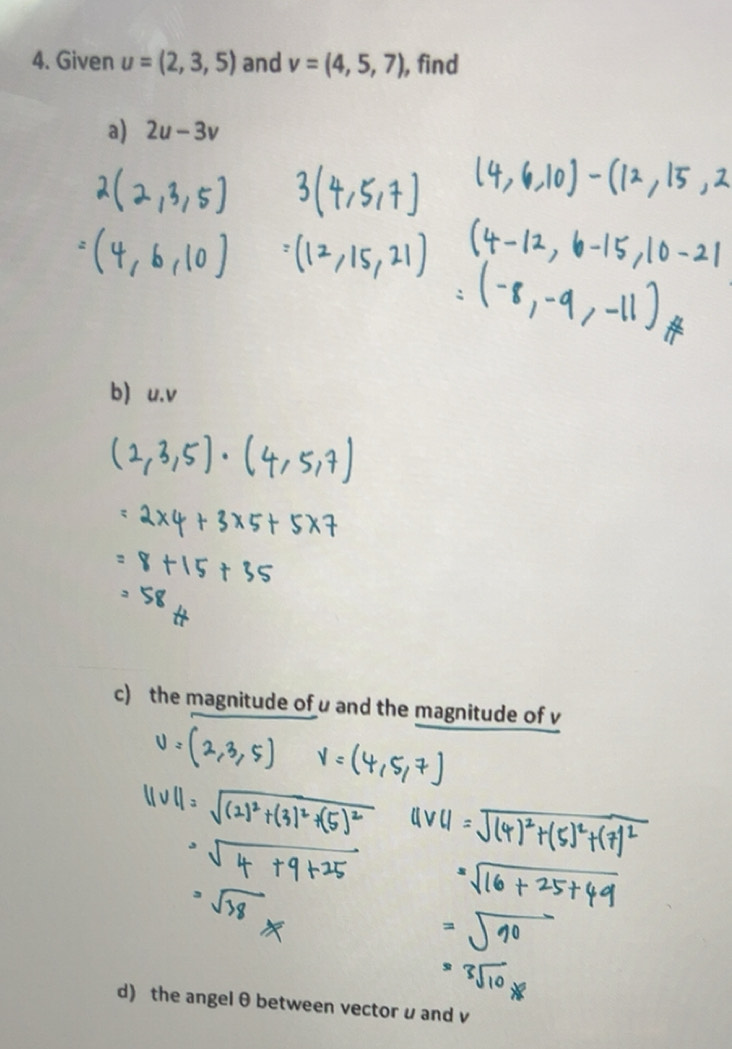 4. Given u = (2, 3, 5) and v = (4, 5, 7), find
a) 2u – 3v
2(2,3,5) 3(4,5,7) (4,6,10) - (12,15,2
=(4,6,10) =(12,15,21) (4-12, 6-15,10-21
= (-8,-9,-11) #
b) u.v
(2,3,5) · (4,5,7)
= 2x4 + 3x5 + 5x7
= 8 + 15 + 35
= 58 #
c) the magnitude of u and the magnitude of v
U = (2,3,5) V = (4,5,7)
||U|| = √(2)²+(3)²+(5)² ||V|| = √(4)²+(5)²+(7)²
= √4 +9+25 = √16 + 25+49
= √38 = √90
= 3√10
d) the angel θ between vector u and v